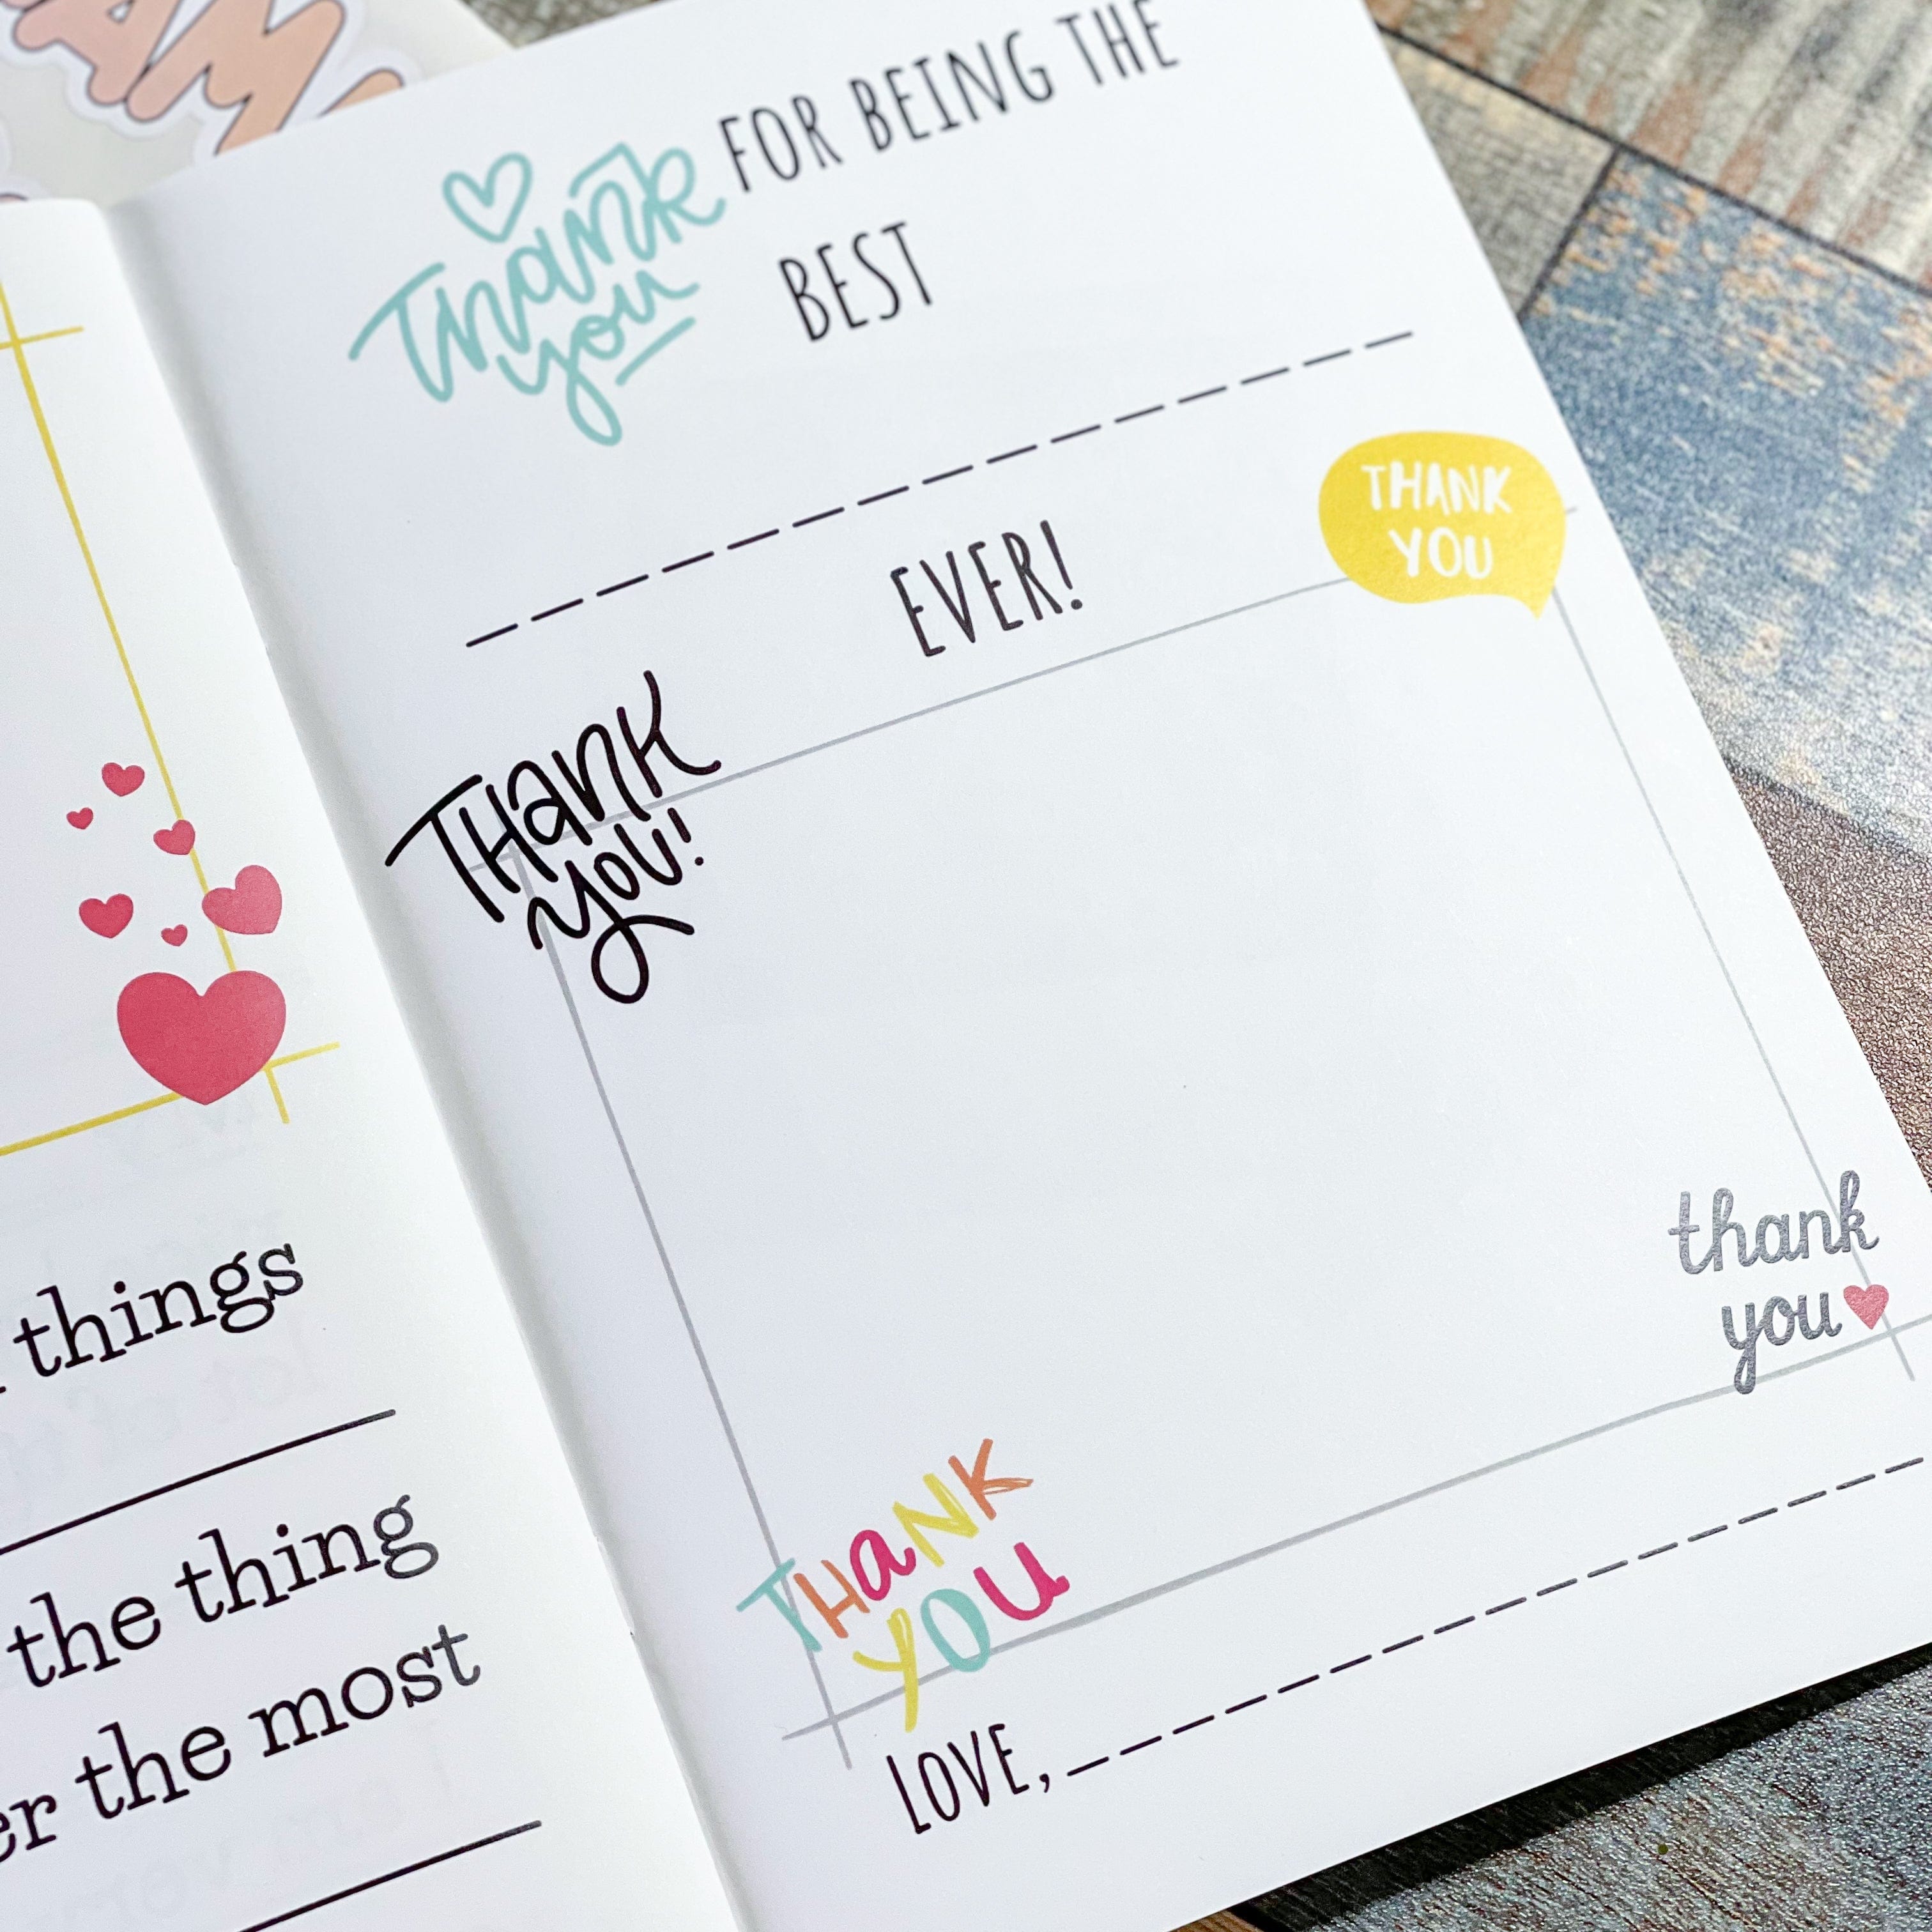 things
the thing
the most
Thank
you
FOR BEING THE
BEST
EVER!
THANK
YOU
THANK
you!
thank
you
THaNK
YOU
LOVE,